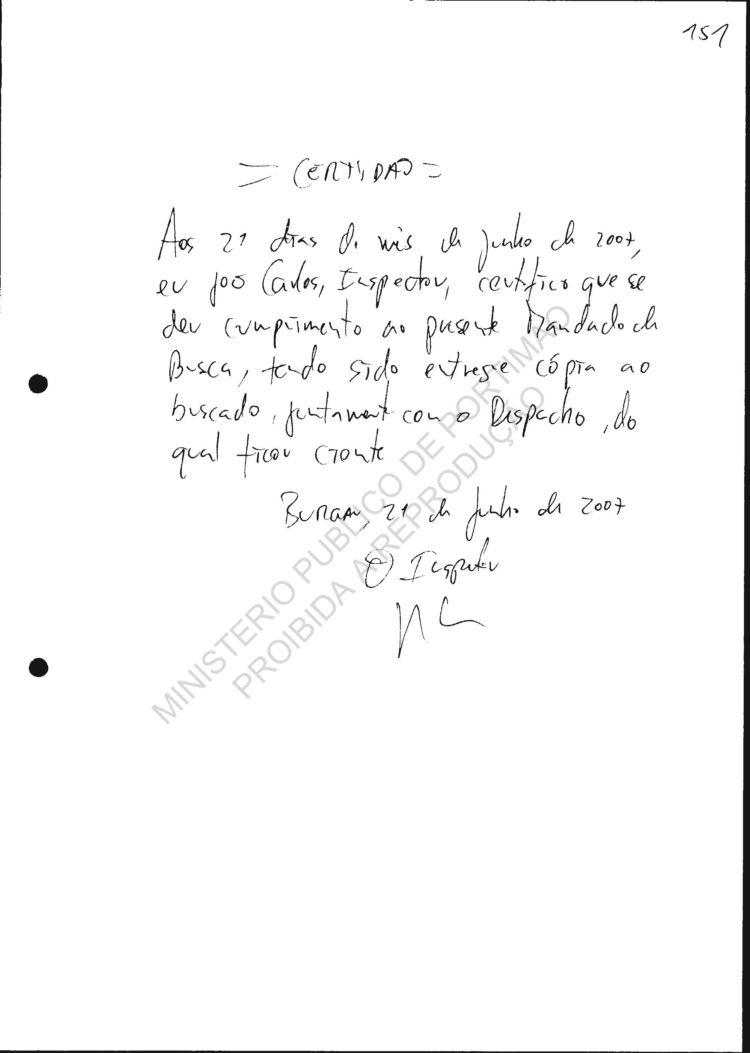 151
= CERTIDÃO =
Aos 21 dias do mês de Junho de 2007,
eu João Carlos, Inspector, certifico que se
deu cumprimento ao presente Mandado de
Busca, tendo sido entregue cópia ao
buscado, juntamente com o Despacho, do
qual ficou ciente
Burgau, 21 de Junho de 2007
O Inspector
MINISTERIO PUBLICO DE PORTIMAO
PROIBIDA A REPRODUÇÃO